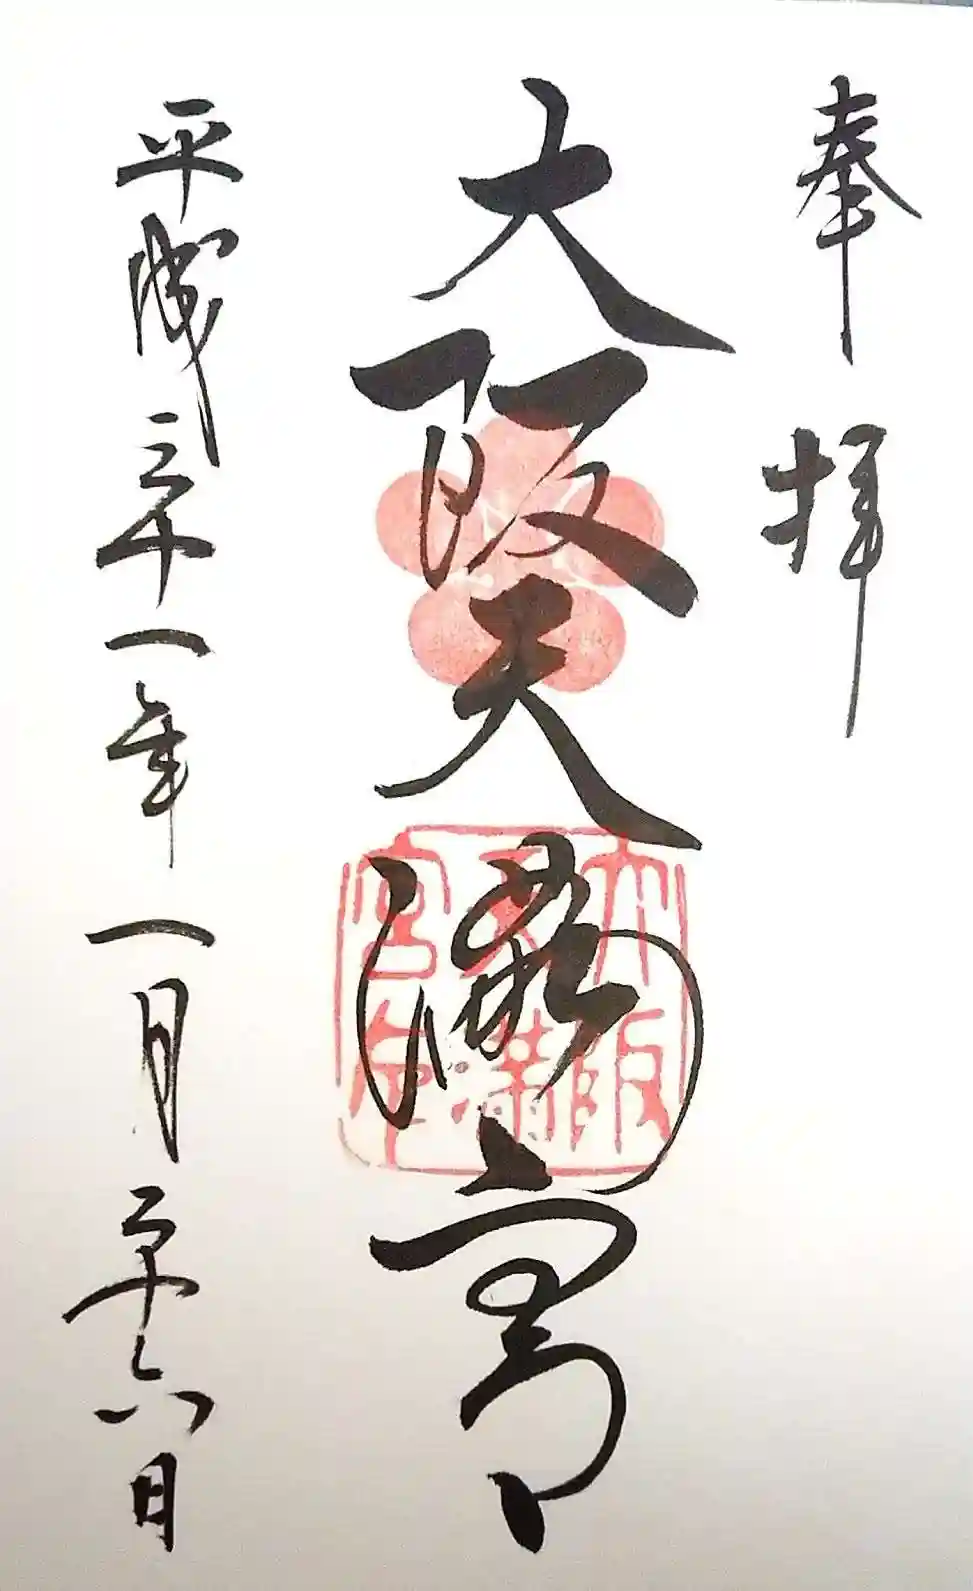 奉拝
大阪天満宮
大阪天満宮印
平成三十一年一月二十六日